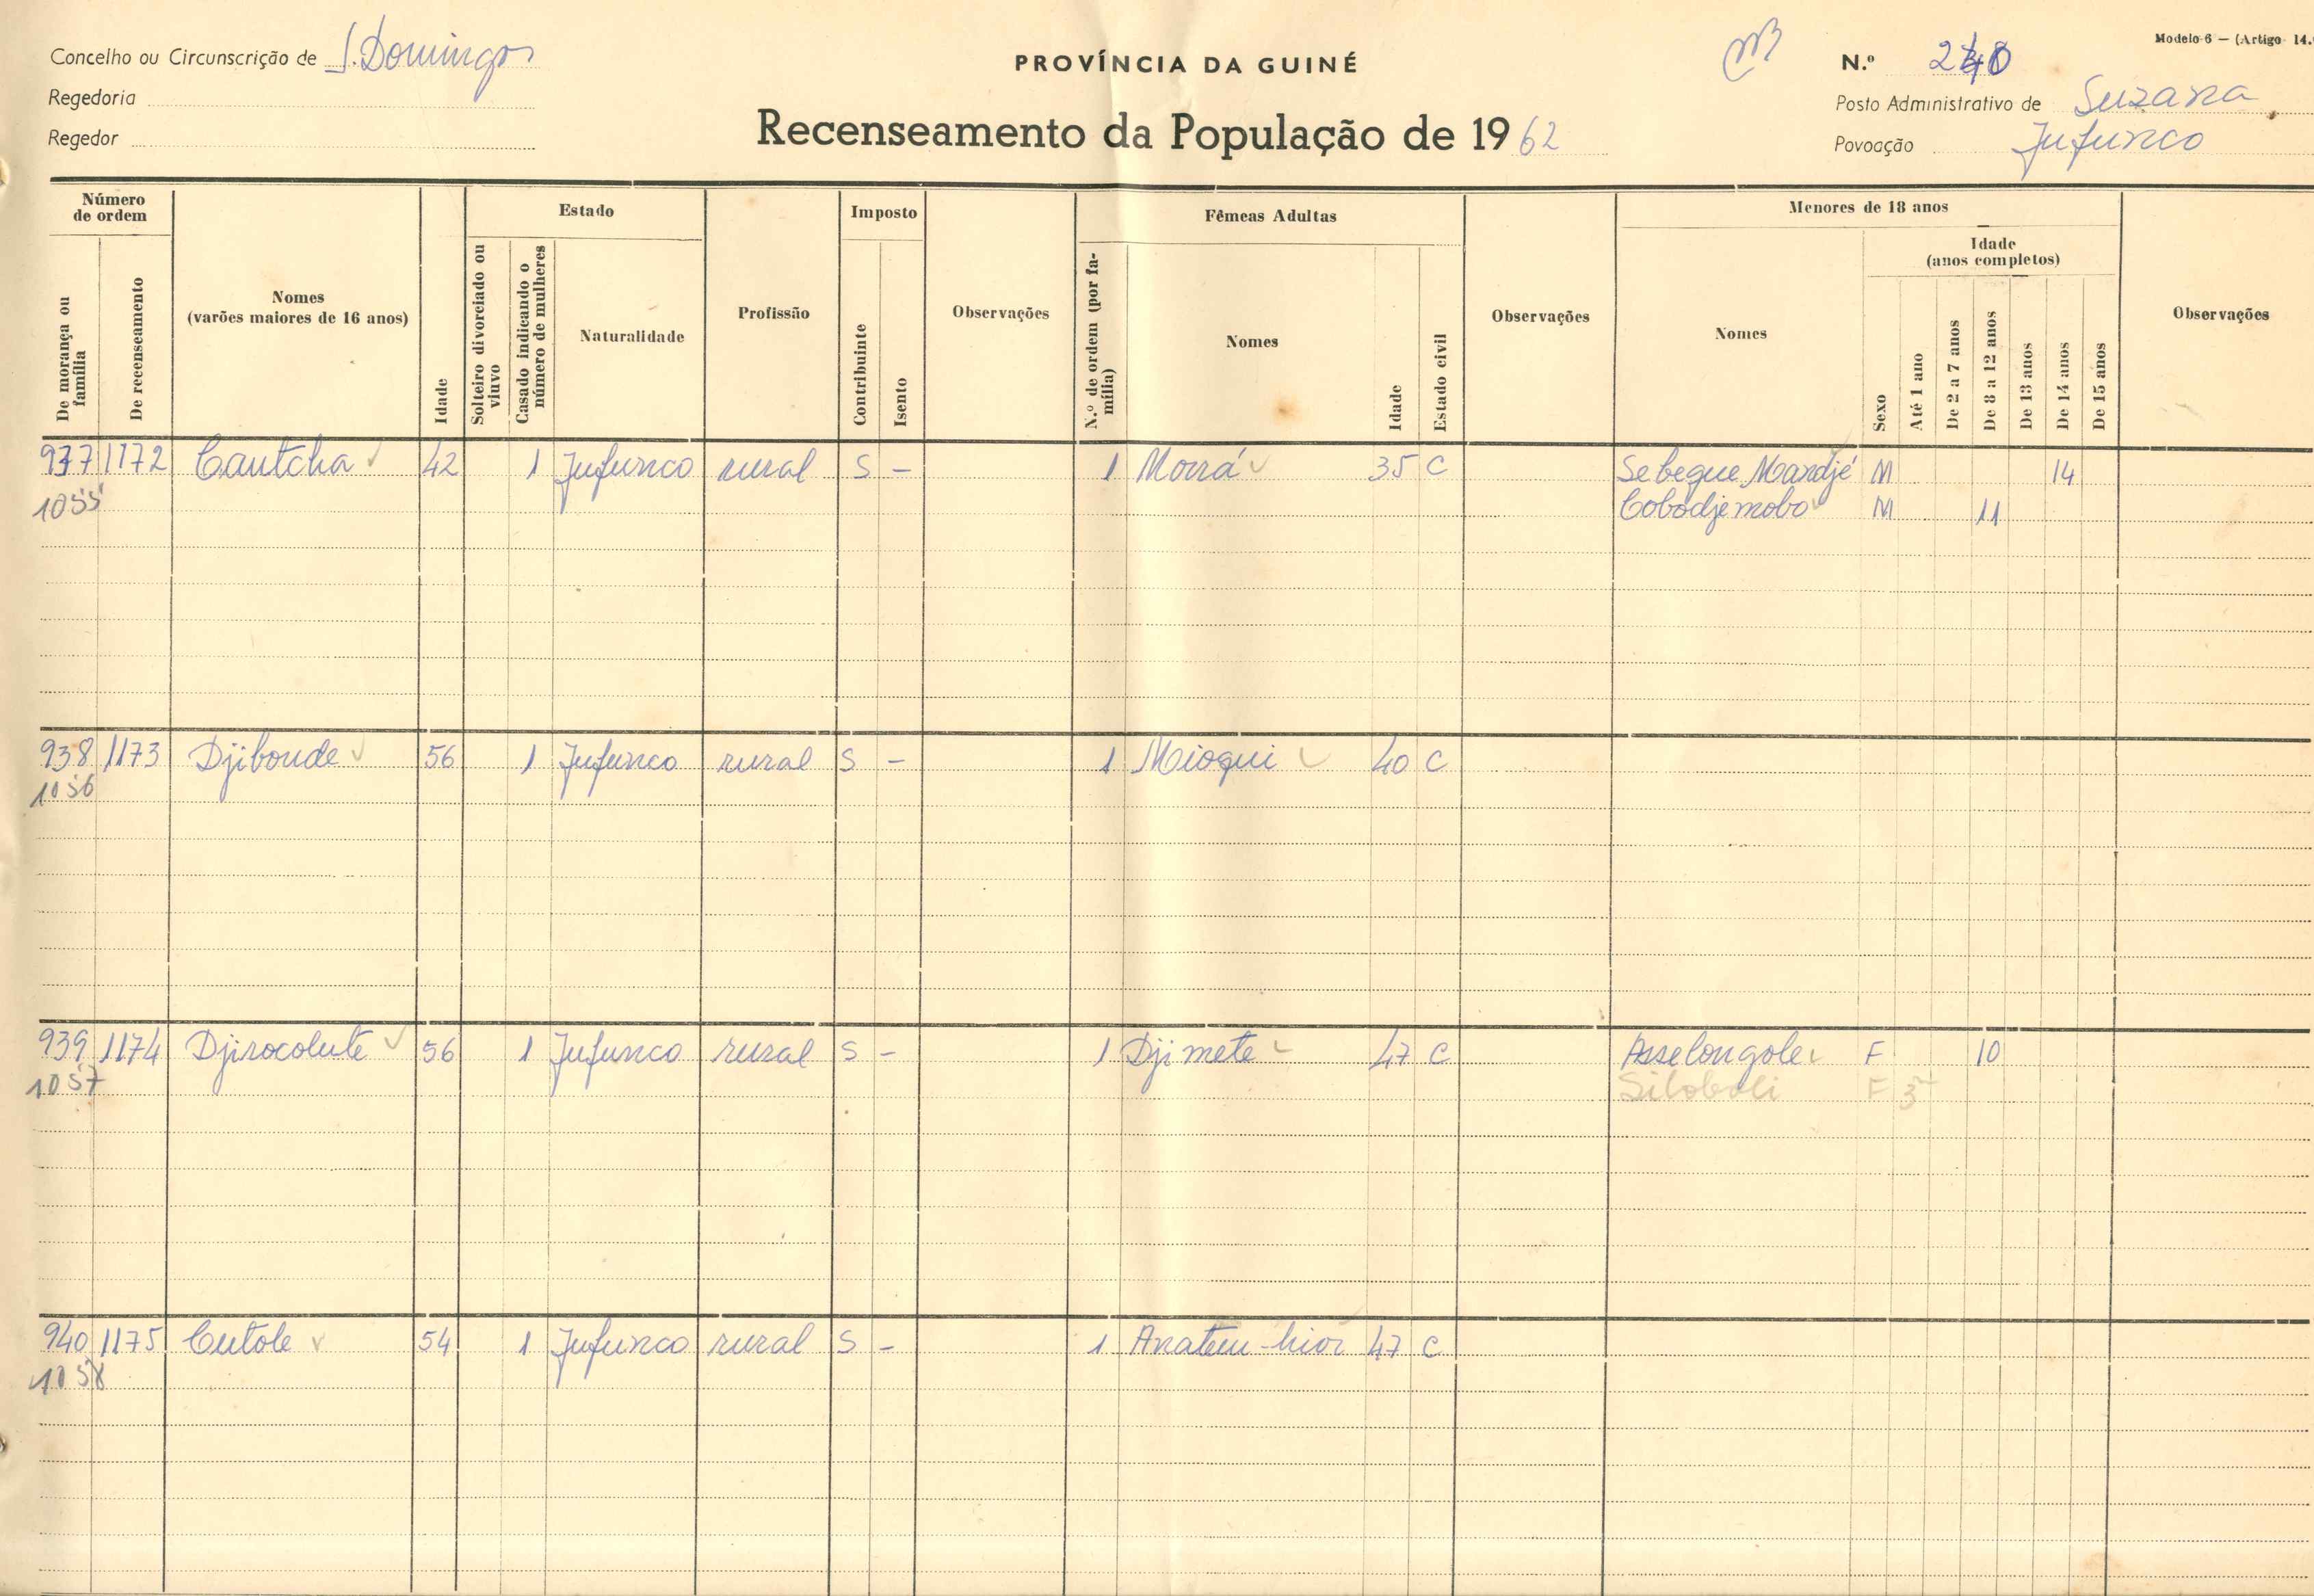 Modelo 6 — (Artigo 14.
Concelho ou Circunscrição de S. Domingos
PROVÍNCIA DA GUINÉ
N.º
Regedoria
Posto Administrativo de Suzana
Regedor
Recenseamento da População de 1962
Povoação Jufunco
Número de ordem
Estado
Imposto
Fêmeas Adultas
Menores de 18 anos
De morança ou família
De recenseamento
Nomes
(varões maiores de 16 anos)
Idade
Solteiro divorciado ou viuvo
Casado indicando o número de mulheres
Naturalidade
Profissão
Contribuinte
Isento
Observações
N.º de ordem (por família)
Nomes
Idade
Estado civil
Observações
Nomes
Sexo
Idade
(anos completos)
Até 1 ano
De 2 a 7 anos
De 8 a 12 anos
De 13 anos
De 14 anos
De 15 anos
Observações
937 1172 Cautcha 42 1 Jufunco rural S - 1 Morrá 35 C Sebegue Mandjé M 14
1055 Cobodjemobo M 11
938 1173 Djibonde 56 1 Jufunco rural S - 1 Mioqui 40 C
1056
939 1174 Djirocolute 56 1 Jufunco rural S - 1 Djimete 47 C Asselongole F 10
1057 Siloboli F 3
940 1175 Cutole 54 1 Jufunco rural S - 1 47 C
1058